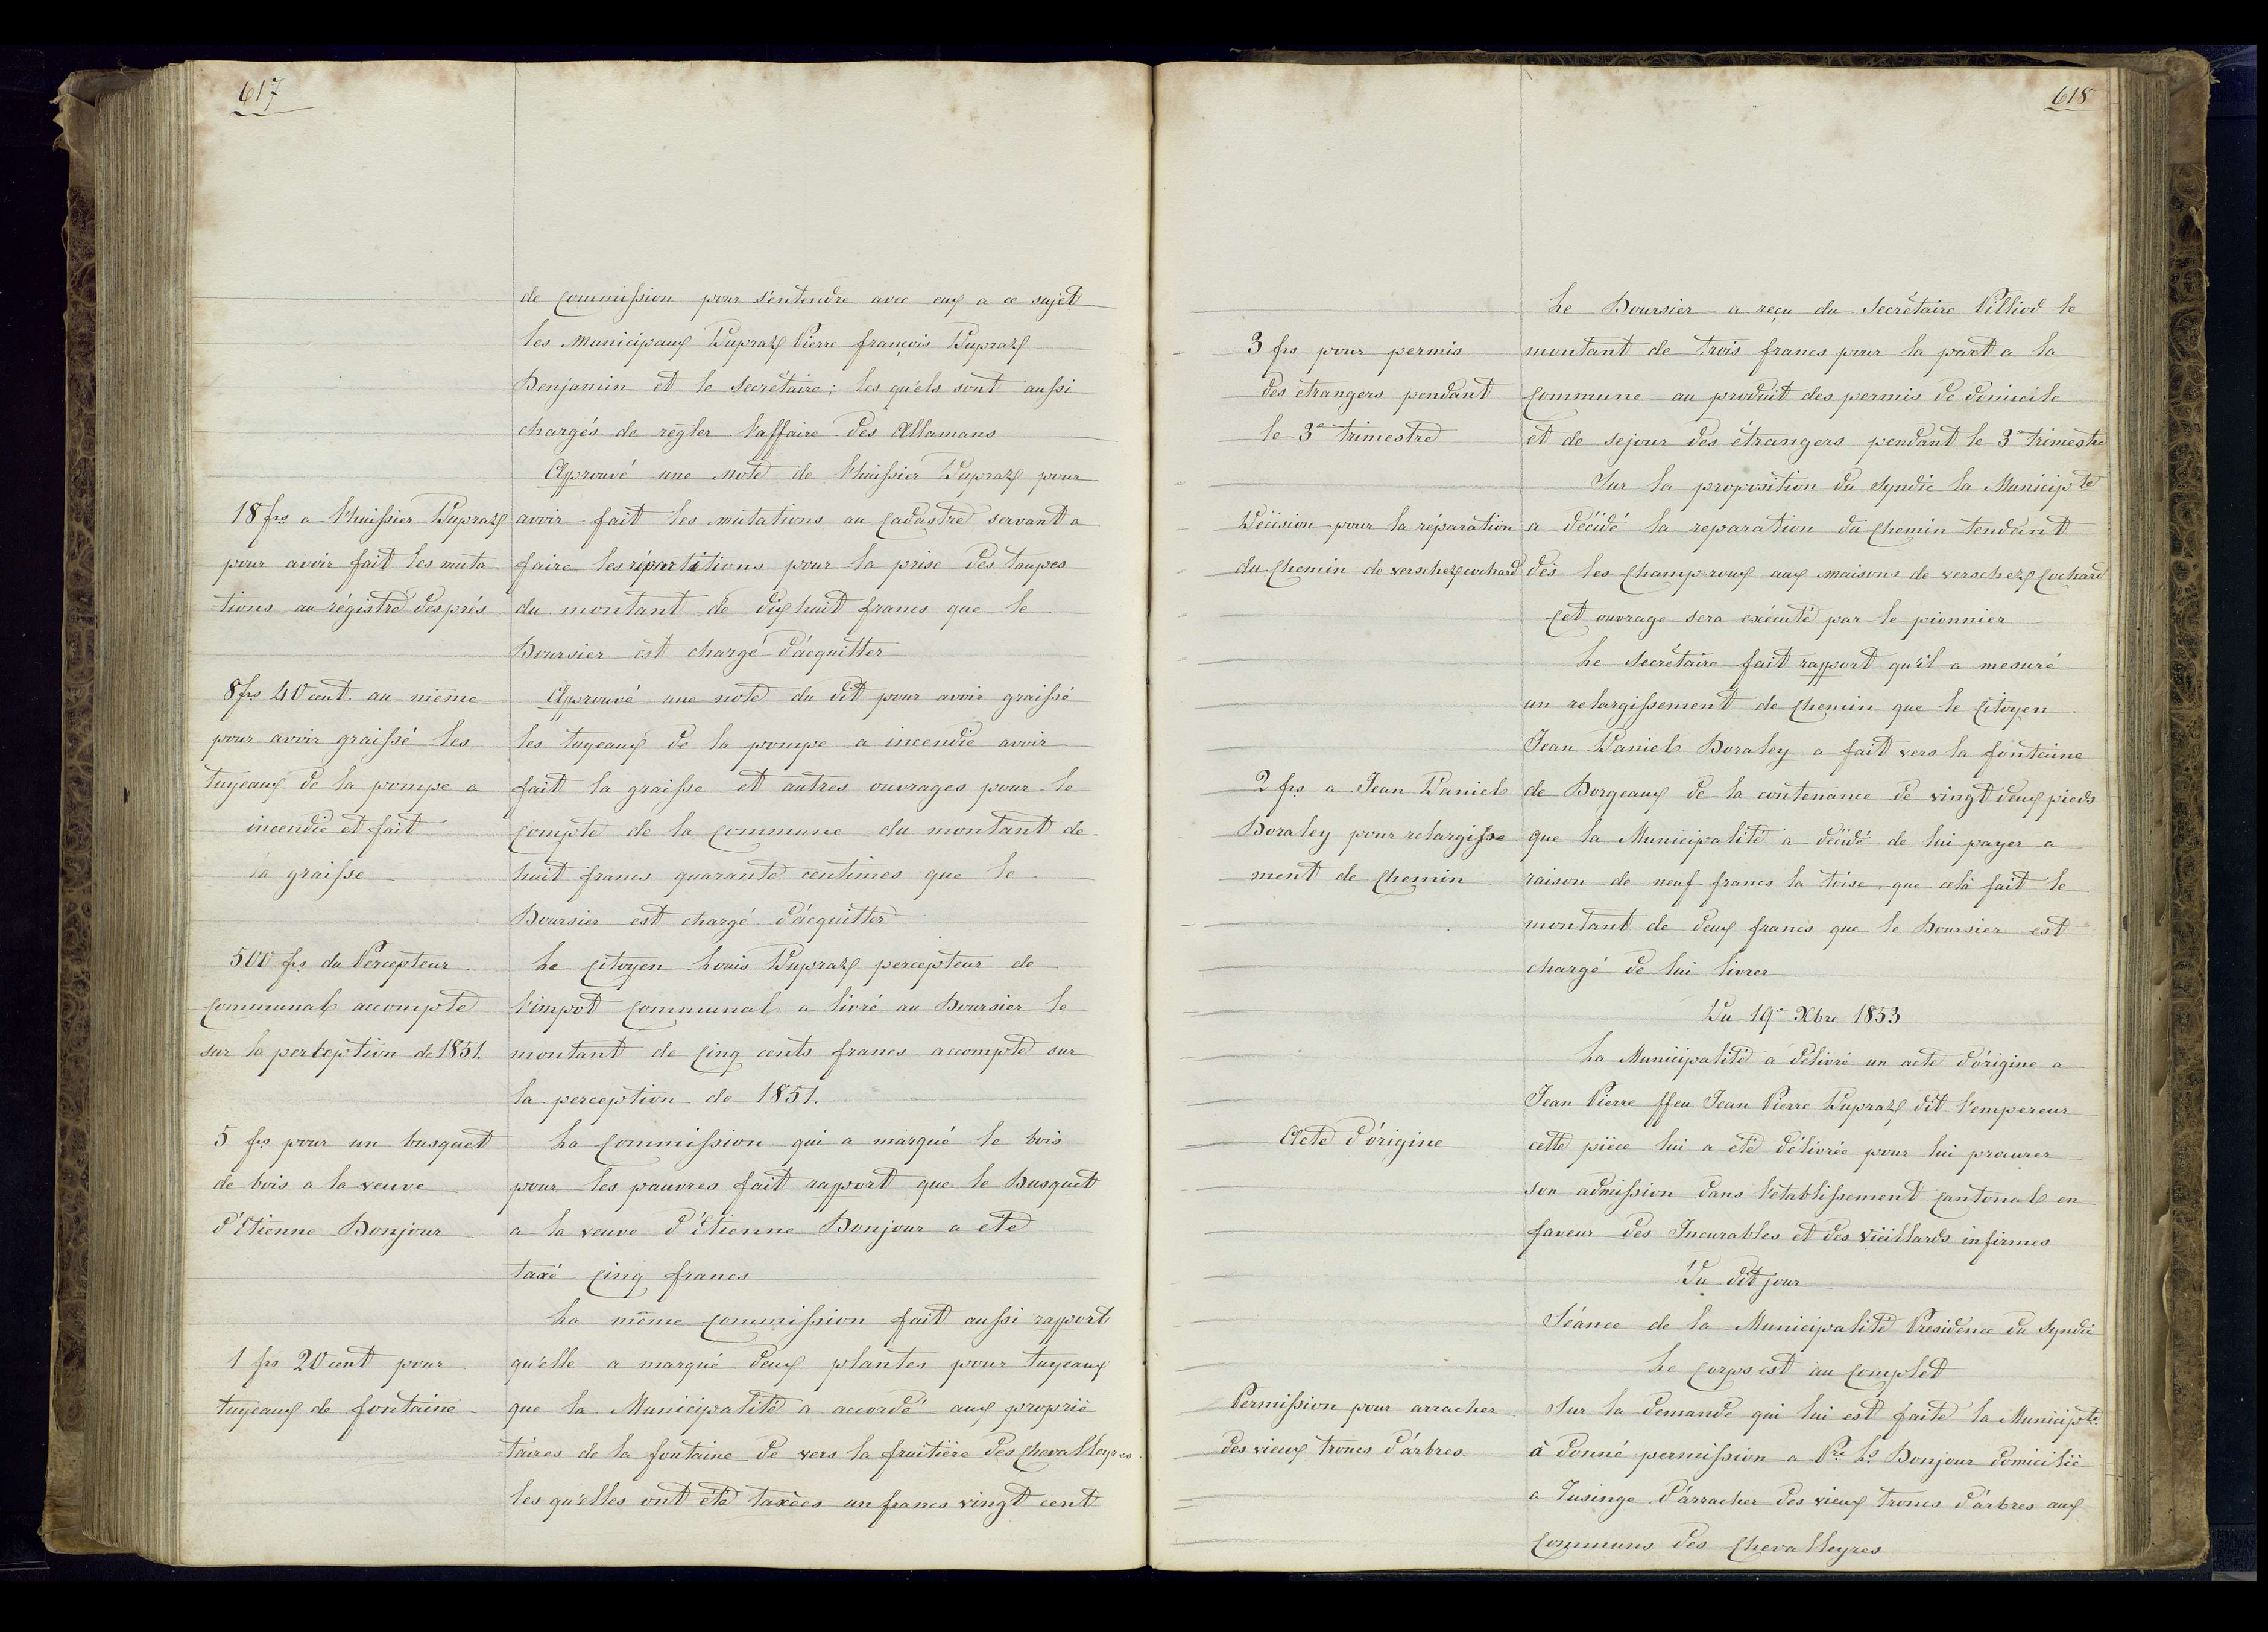 617
de Commission pour s'entendre avec eux a ce sujet
les Municipaux Dupraz Pierre françois Dupraz
Benjamin et le Secrétaire; les qu'els sont aussi
chargés de régler l'affaire des Allamans
Approuvé une note de l'huissier Dupraz pour
18 frs a l'huissier Dupraz
avoir fait les mutations au Cadastre servant a
pour avoir fait les muta
faire les répartitions pour la prise des taupes
-tions au régistre des prés
du montant de dix huit francs que le
Boursier est chargé d'acquitter
8 frs 40 cent. au même
Approuvé une note du dit pour avoir graissé
pour avoir graissé les
les tuyeaux de la pompe a incendie avoir
tuyeaux de la pompe a
fait la graisse et autres ouvrages pour le
incendie et fait
Compte de la Commune du montant de
la graisse
huit francs quarante centimes que le
Boursier est chargé d'acquitter
500 frs du Percepteur
Le Citoyen Louis Dupraz percepteur de
Communal accompte
l'impot Communal a livré au Boursier le
sur la perception de 1851.
montant de Cinq cents francs accompte sur
la perception de 1851.
5 frs pour un busquet
La Commission qui a marqué le bois
de bois a la veuve
pour les pauvres fait rapport que le Busquet
d'Etienne Bonjour
a la veuve d'Etienne Bonjour a été
taxé Cinq francs
La même Commission fait aussi rapport
1 frs 20 cent pour
qu'elle a marqué deux plantes pour tuyeaux
tuyeaux de fontaine
que la Municipalité a accordé aux proprié
-taires de la fontaine de vers la fruitière des Chevalleyres
les qu'elles ont été taxées un francs vingt cent
618
Le Boursier a reçu du Secrétaire Pilliod le
3 frs pour permis
montant de trois francs pour la part a la
des étrangers pendant
Commune au produit des permis de domicile
le 3e trimestre
et de sejour des étrangers pendant le 3e trimestre
Sur la proposition du Syndic la Municipté
Décision pour la réparation
a décidé la reparation du Chemin tendant
du Chemin de verschez cochard
dès les Champ-roux aux maisons de verschez Cochard
Cet ouvrage sera exécuté par le pionnier
Le Secrétaire fait rapport qu'il a mesuré
un relargissement de Chemin que le Citoyen
Jean Daniel Boraley a fait vers la fontaine
2 frs a Jean Daniel
de Borgeaux de la contenance de vingt deux pieds
Boraley pour relargisse
que la Municipalité a décidé de lui payer a
ment de Chemin
raison de neuf francs la toise, que celà fait le
montant de deux francs que le Boursier est
chargé de lui livrer
Du 19e Xbre 1853
La Municipalité a délivré un acte d'origine a
Jean Pierre ffeu Jean Pierre Dupraz dit l'empereur
Acte d'origine
cette pièce lui a été délivrée pour lui procurer
son admission dans l'établissement Cantonal en
faveur des Incurables et des vieillards infirmes
Du dit jour
Séance de la Municipalité Présidence du Syndic
Le Corps est au Complet
Permission pour arracher
Sur la demande qui lui est faite la Municipté
des vieux troncs d'arbres.
à donné permission a Pre Ls Bonjour domicilié
a Tusinge d'arracher des vieux troncs d'arbres aux
Communs des Chevalleyres